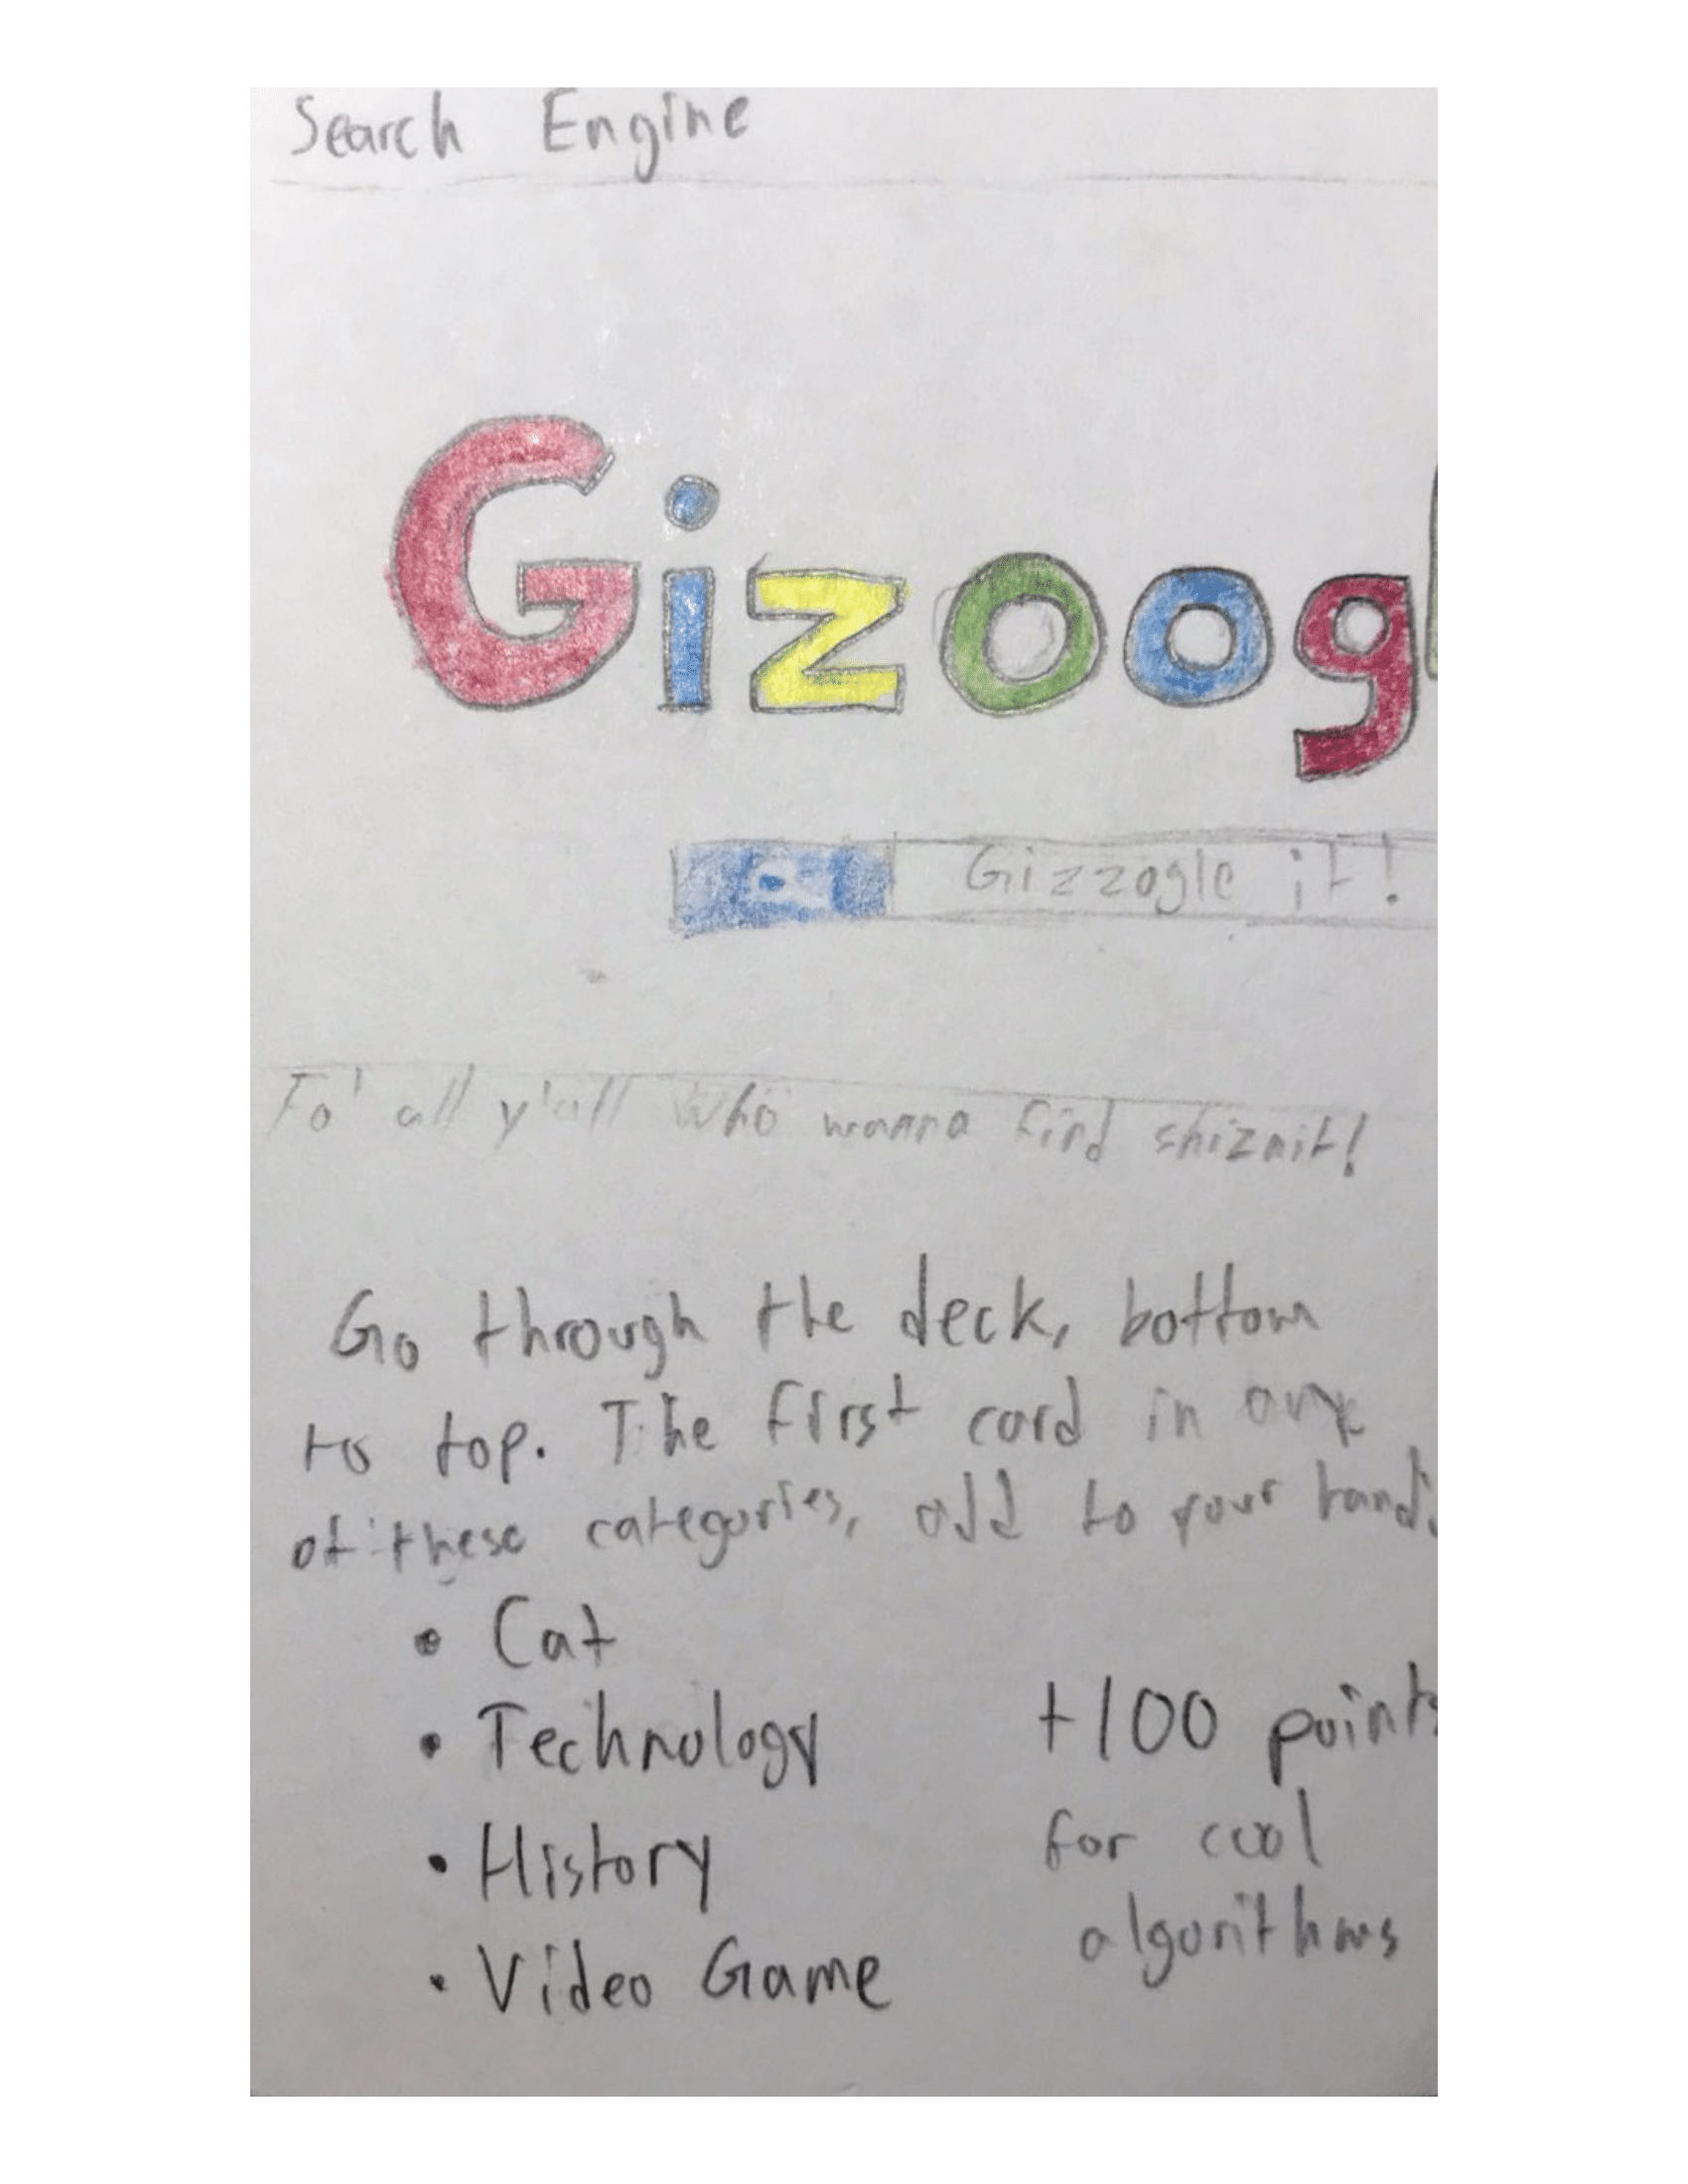 Search Engine
Gizoogl
Gizzogle it!
Fo' all y'all who wanna find shiznit!
Go through the deck, bottom
to top. The first card in any
of these categories, add to your hand.
• Cat
• Technology
• History
• Video Game
+100 points
for cool
algorithms